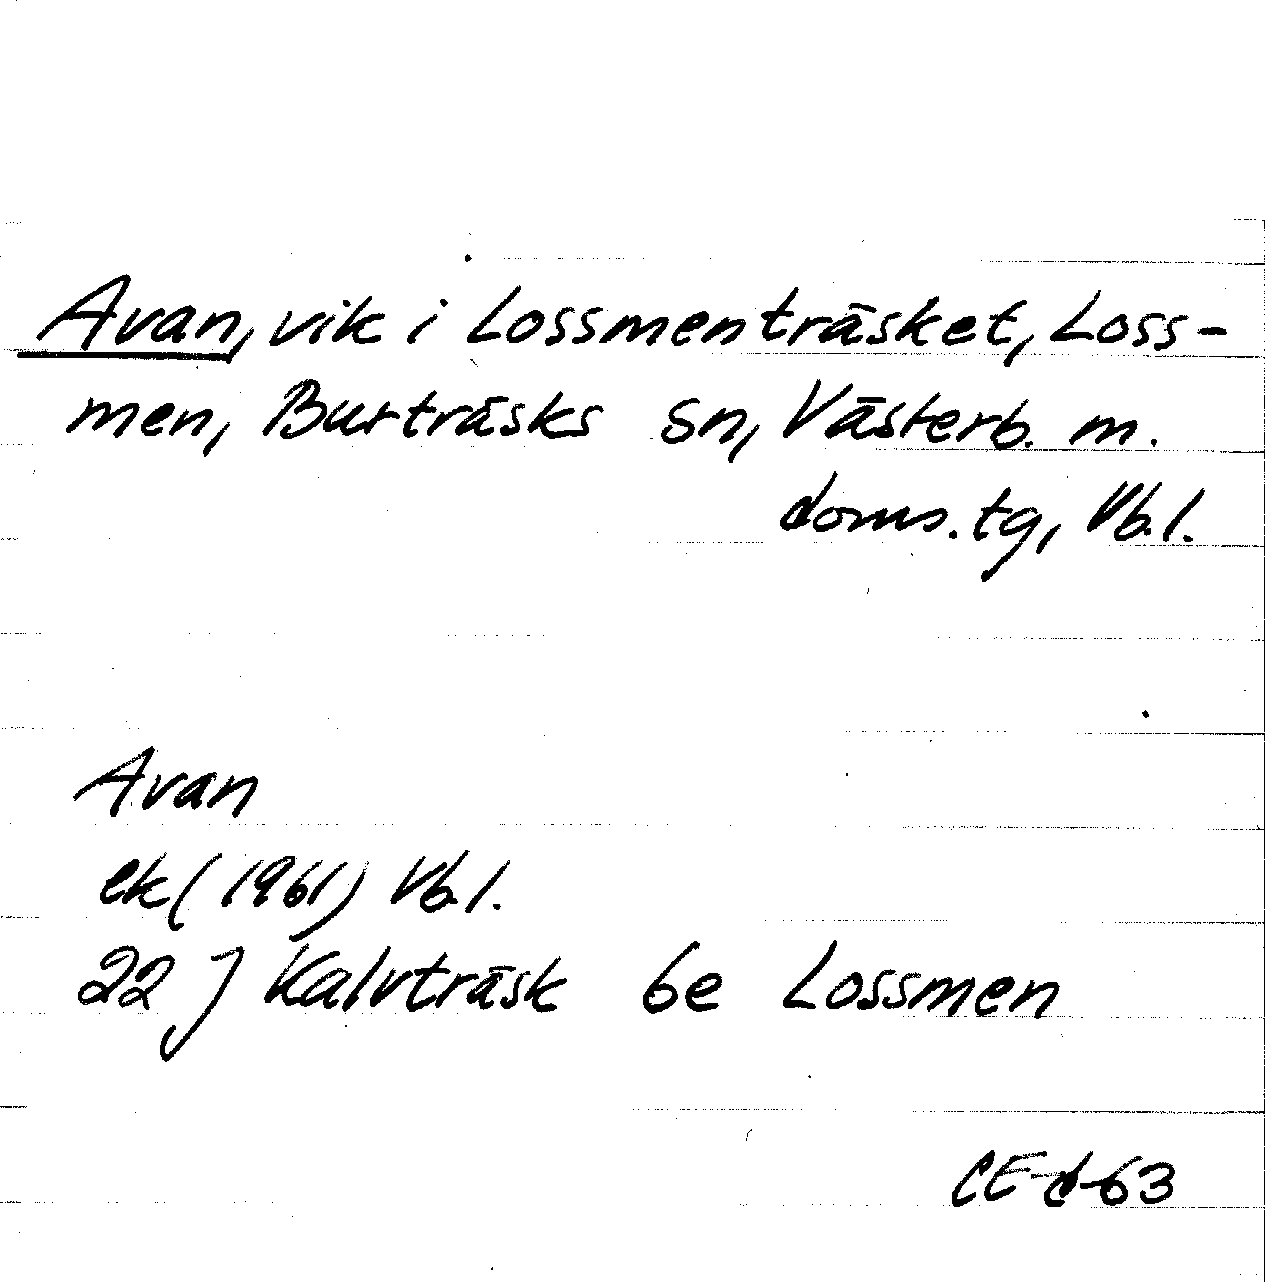 Avan, vik i Lossmenträsket, Loss-
men, Burträsks sn, Västerb. m.
doms.tg, Vb.l.
Avan
ek (1961) Vb.l.
22 J Kalvträsk 6e Lossmen
CE-d-63